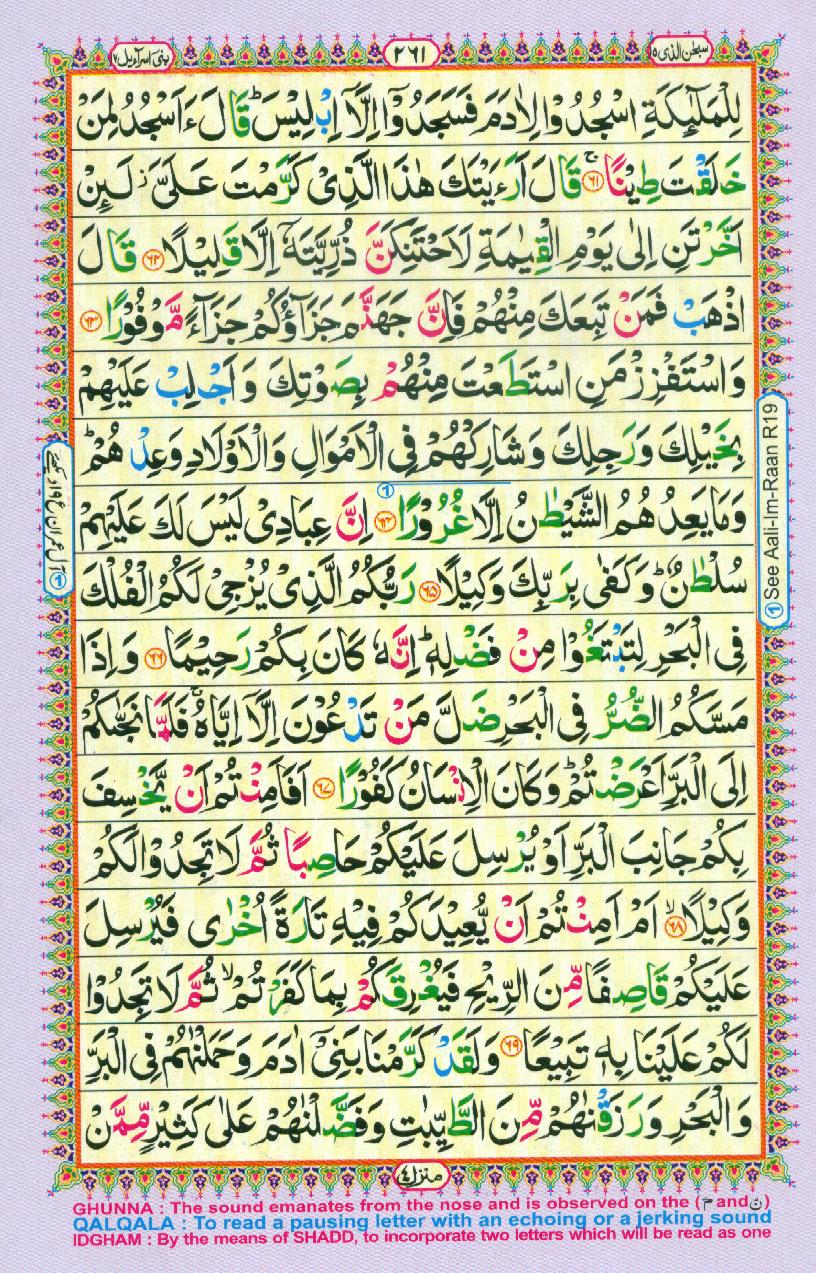 سبحٰن الذی ۱۵
۲۶۱
بنی اسرآءیل ۱۷
لِلْمَلٰٓئِكَةِ اسْجُدُوْا لِاٰدَمَ فَسَجَدُوْۤا اِلَّاۤ اِبْلِيْسَ ؕ قَالَ ءَاَسْجُدُ لِمَنْ
خَلَقْتَ طِيْنًا ۚ‏﴿۶۱﴾ قَالَ اَرَءَيْتَكَ هٰذَا الَّذِىْ كَرَّمْتَ عَلَىَّ ز لَٮِٕنْ
اَخَّرْتَنِ اِلٰى يَوْمِ الْقِيٰمَةِ لَاَحْتَنِكَنَّ ذُرِّيَّتَهٗۤ اِلَّا قَلِيْلًا ﴿۶۲﴾ قَالَ
اذْهَبْ فَمَنْ تَبِعَكَ مِنْهُمْ فَاِنَّ جَهَنَّمَ جَزَآؤُكُمْ جَزَآءً مَّوْفُوْرًا ﴿۶۳﴾
وَاسْتَفْزِزْ مَنِ اسْتَطَعْتَ مِنْهُمْ بِصَوْتِكَ وَاَجْلِبْ عَلَيْهِمْ
بِخَيْلِكَ وَرَجِلِكَ وَشَارِكْهُمْ فِى الْاَمْوَالِ وَالْاَوْلَادِ وَعِدْهُمْ ؕ
وَمَا يَعِدُهُمُ الشَّيْطٰنُ اِلَّا غُرُوْرًا ﴿۶۴﴾ ① اِنَّ عِبَادِىْ لَيْسَ لَكَ عَلَيْهِمْ
سُلْطٰنٌ ؕ وَكَفٰى بِرَبِّكَ وَكِيْلًا ﴿۶۵﴾ رَبُّكُمُ الَّذِىْ يُزْجِىْ لَكُمُ الْفُلْكَ
فِى الْبَحْرِ لِتَبْتَغُوْا مِنْ فَضْلِهٖ ؕ اِنَّهٗ كَانَ بِكُمْ رَحِيْمًا ﴿۶۶﴾ وَاِذَا
مَسَّكُمُ الضُّرُّ فِى الْبَحْرِ ضَلَّ مَنْ تَدْعُوْنَ اِلَّاۤ اِيَّاهُ ۚ فَلَمَّا نَجّٰٮكُمْ
اِلَى الْبَرِّ اَعْرَضْتُمْ ؕ وَكَانَ الْاِنْسَانُ كَفُوْرًا ﴿۶۷﴾ اَفَاَمِنْتُمْ اَنْ يَّخْسِفَ
بِكُمْ جَانِبَ الْبَرِّ اَوْ يُرْسِلَ عَلَيْكُمْ حَاصِبًا ثُمَّ لَا تَجِدُوْا لَكُمْ
وَكِيْلًا ۙ‏﴿۶۸﴾ اَمْ اَمِنْتُمْ اَنْ يُّعِيْدَكُمْ فِيْهِ تَارَةً اُخْرٰى فَيُرْسِلَ
عَلَيْكُمْ قَاصِفًا مِّنَ الرِّيْحِ فَيُغْرِقَكُمْ بِمَا كَفَرْتُمْ ۙ ثُمَّ لَا تَجِدُوْا
لَكُمْ عَلَيْنَا بِهٖ تَبِيْعًا ﴿۶۹﴾ وَلَقَدْ كَرَّمْنَا بَنِىْۤ اٰدَمَ وَحَمَلْنٰهُمْ فِى الْبَرِّ
وَالْبَحْرِ وَرَزَقْنٰهُمْ مِّنَ الطَّيِّبٰتِ وَفَضَّلْنٰهُمْ عَلٰى كَثِيْرٍ مِّمَّنْ
① See Aali-Im-Raan R19
منزل ۴
GHUNNA : The sound emanates from the nose and is observed on the (مّ and نّ)
QALQALA : To read a pausing letter with an echoing or a jerking sound
IDGHAM : By the means of SHADD, to incorporate two letters which will be read as one